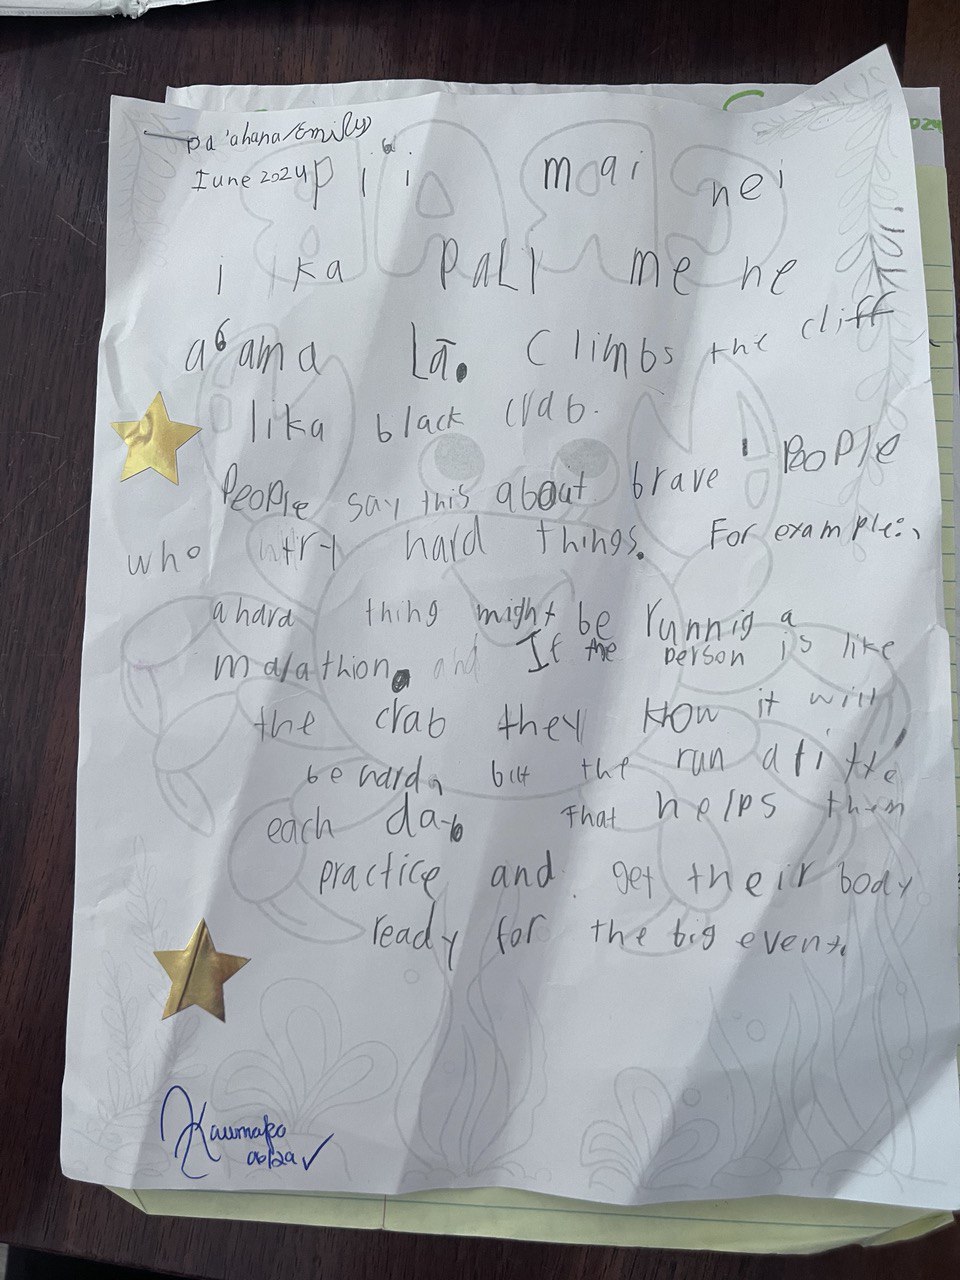 pa'ahana/Emily
June 2024
pi'i mai nei
i ka pali me he
a'ama Lā. Climbs the cliff
lika black crab.
People say this about brave People
who try hard things. For example:
a hard thing might be runnig a
marathion. If the person is like
the crab they know it will
be hard, but the run a little
each day that helps them
practice and get their body
ready for the big event.
Kaumako
06/24 ✓
CRAB